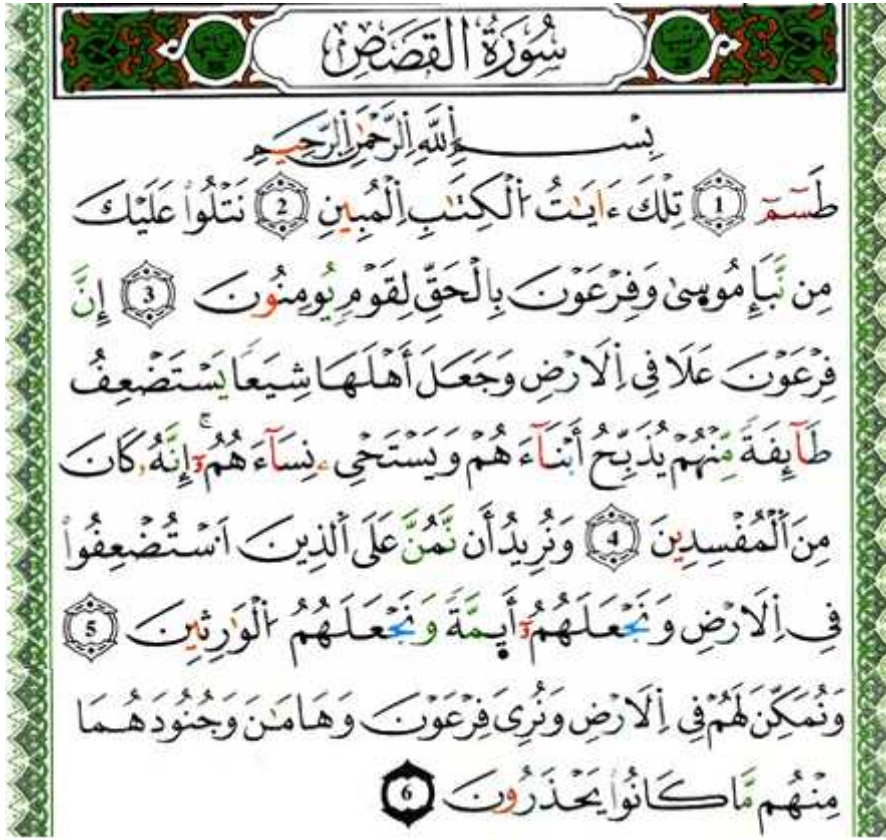 سُورَةُ الْقَصَصِ
بِسْمِ اِللَّهِ اِلرَّحْمَٰنِ اِلرَّحِيمِ
طَسِٓمِّٓ 1 تِلْكَ ءَايَٰتُ اُلْكِتَٰبِ اِلْمُبِينِ 2 نَتْلُواْ عَلَيْكَ
مِن نَّبَإِ مُوسٜىٰ وَفِرْعَوْنَ بِالْحَقِّ لِقَوْمٖ يُومِنُونَ 3 إِنَّ
فِرْعَوْنَ عَلَا فِي اِلَارْضِ وَجَعَلَ أَهْلَهَا شِيَعاٗ يَسْتَضْعِفُ
طَآئِفَةٗ مِّنْهُمْ يُذَبِّحُ أَبْنَآءَهُمْ وَيَسْتَحْيِۦ نِسَآءَهُمُۥٓۖ إِنَّهُۥ كَانَ
مِنَ اَلْمُفْسِدِينَ 4 وَنُرِيدُ أَن نَّمُنَّ عَلَى اَلذِينَ اَسْتُضْعِفُواْ
فِي اِلَارْضِ وَنَجْعَلَهُمُۥٓ أَئِمَّةٗ وَنَجْعَلَهُمُ اُلْوَٰرِثِينَ 5
وَنُمَكِّنَ لَهُمْ فِي اِلَارْضِ وَنُرِيَ فِرْعَوْنَ وَهَٰمَٰنَ وَجُنُودَهُمَا
مِنْهُم مَّا كَانُواْ يَحْذَرُونَ 6